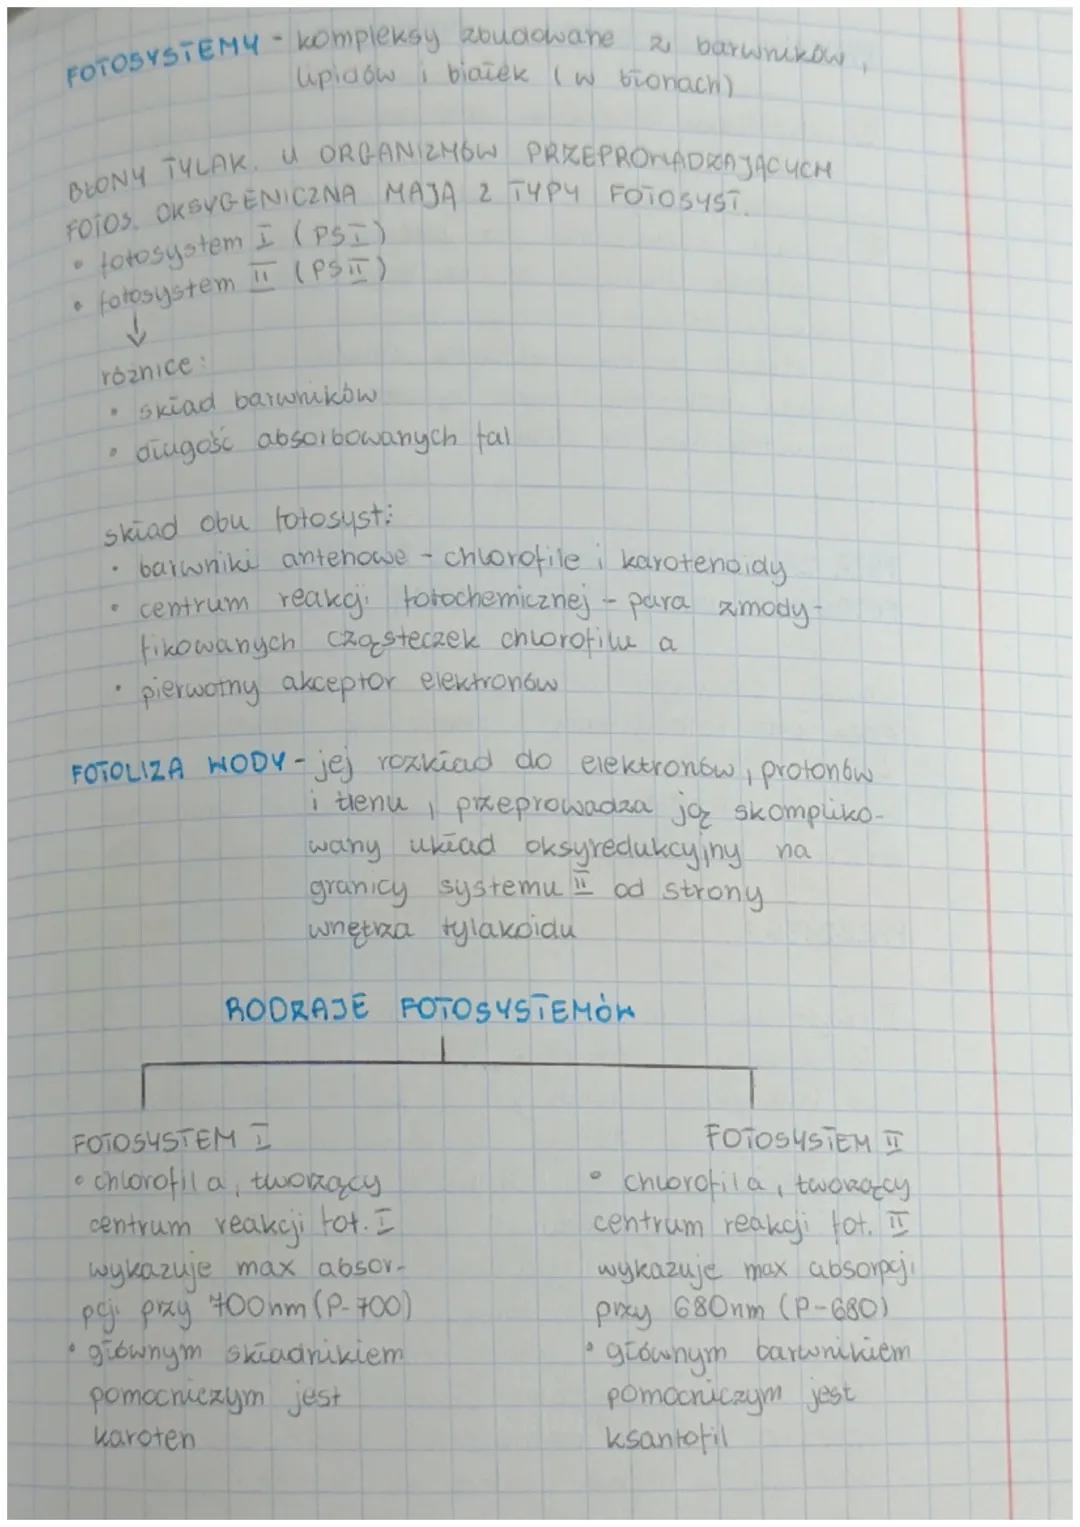 FOTOSYSTEMY - kompleksy zbudowane z barwników,
lipidów i białek (w błonach)
BŁONY TYLAK. U ORGANIZMÓW PRZEPROWADZAJĄCYCH
FOTOS. OKSYGENICZNĄ MAJĄ 2 TYPY FOTOSYST.
• fotosystem I (PSI)
• fotosystem II (PSII)
↓
różnice:
• skład barwników
• długość absorbowanych fal
skład obu fotosyst:
• barwniki antenowe - chlorofile i karotenoidy
• centrum reakcji fotochemicznej - para zmody-
fikowanych cząsteczek chlorofilu a
• pierwotny akceptor elektronów
FOTOLIZA WODY - jej rozkład do elektronów, protonów
i tlenu, przeprowadza ją skompliko-
wany układ oksyredukcyjny na
granicy systemu II od strony
wnętrza tylakoidu
RODZAJE FOTOSYSTEMÓW
FOTOSYSTEM I
• chlorofil a, tworzący
centrum reakcji fot. I
wykazuje max absor-
pcji przy 700nm (P-700)
• głównym składnikiem
pomocniczym jest
karoten
FOTOSYSTEM II
• chlorofil a, tworzący
centrum reakcji fot. II
wykazuje max absorpcji
przy 680nm (P-680)
• głównym barwnikiem
pomocniczym jest
ksantofil